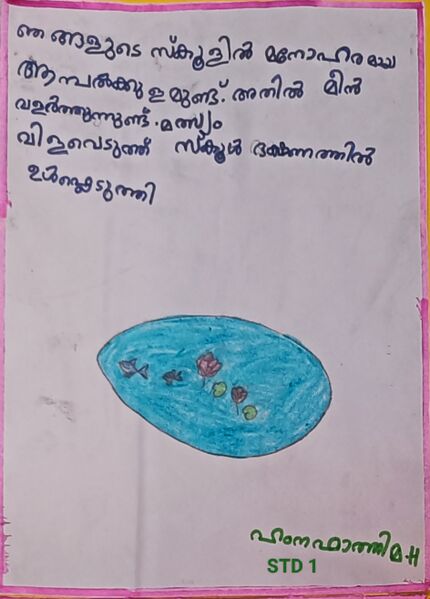 ഞങ്ങളുടെ സ്കൂളിൽ മനോഹരമായ
ആമ്പൽക്കുളമുണ്ട്. അതിൽ മീൻ
വളർത്തുന്നുണ്ട്. മത്സ്യം
വിളവെടുത്ത് സ്കൂൾ ഭക്ഷണത്തിൽ
ഉൾപ്പെടുത്തി
ഹംന ഫാത്തിമ.H
STD 1